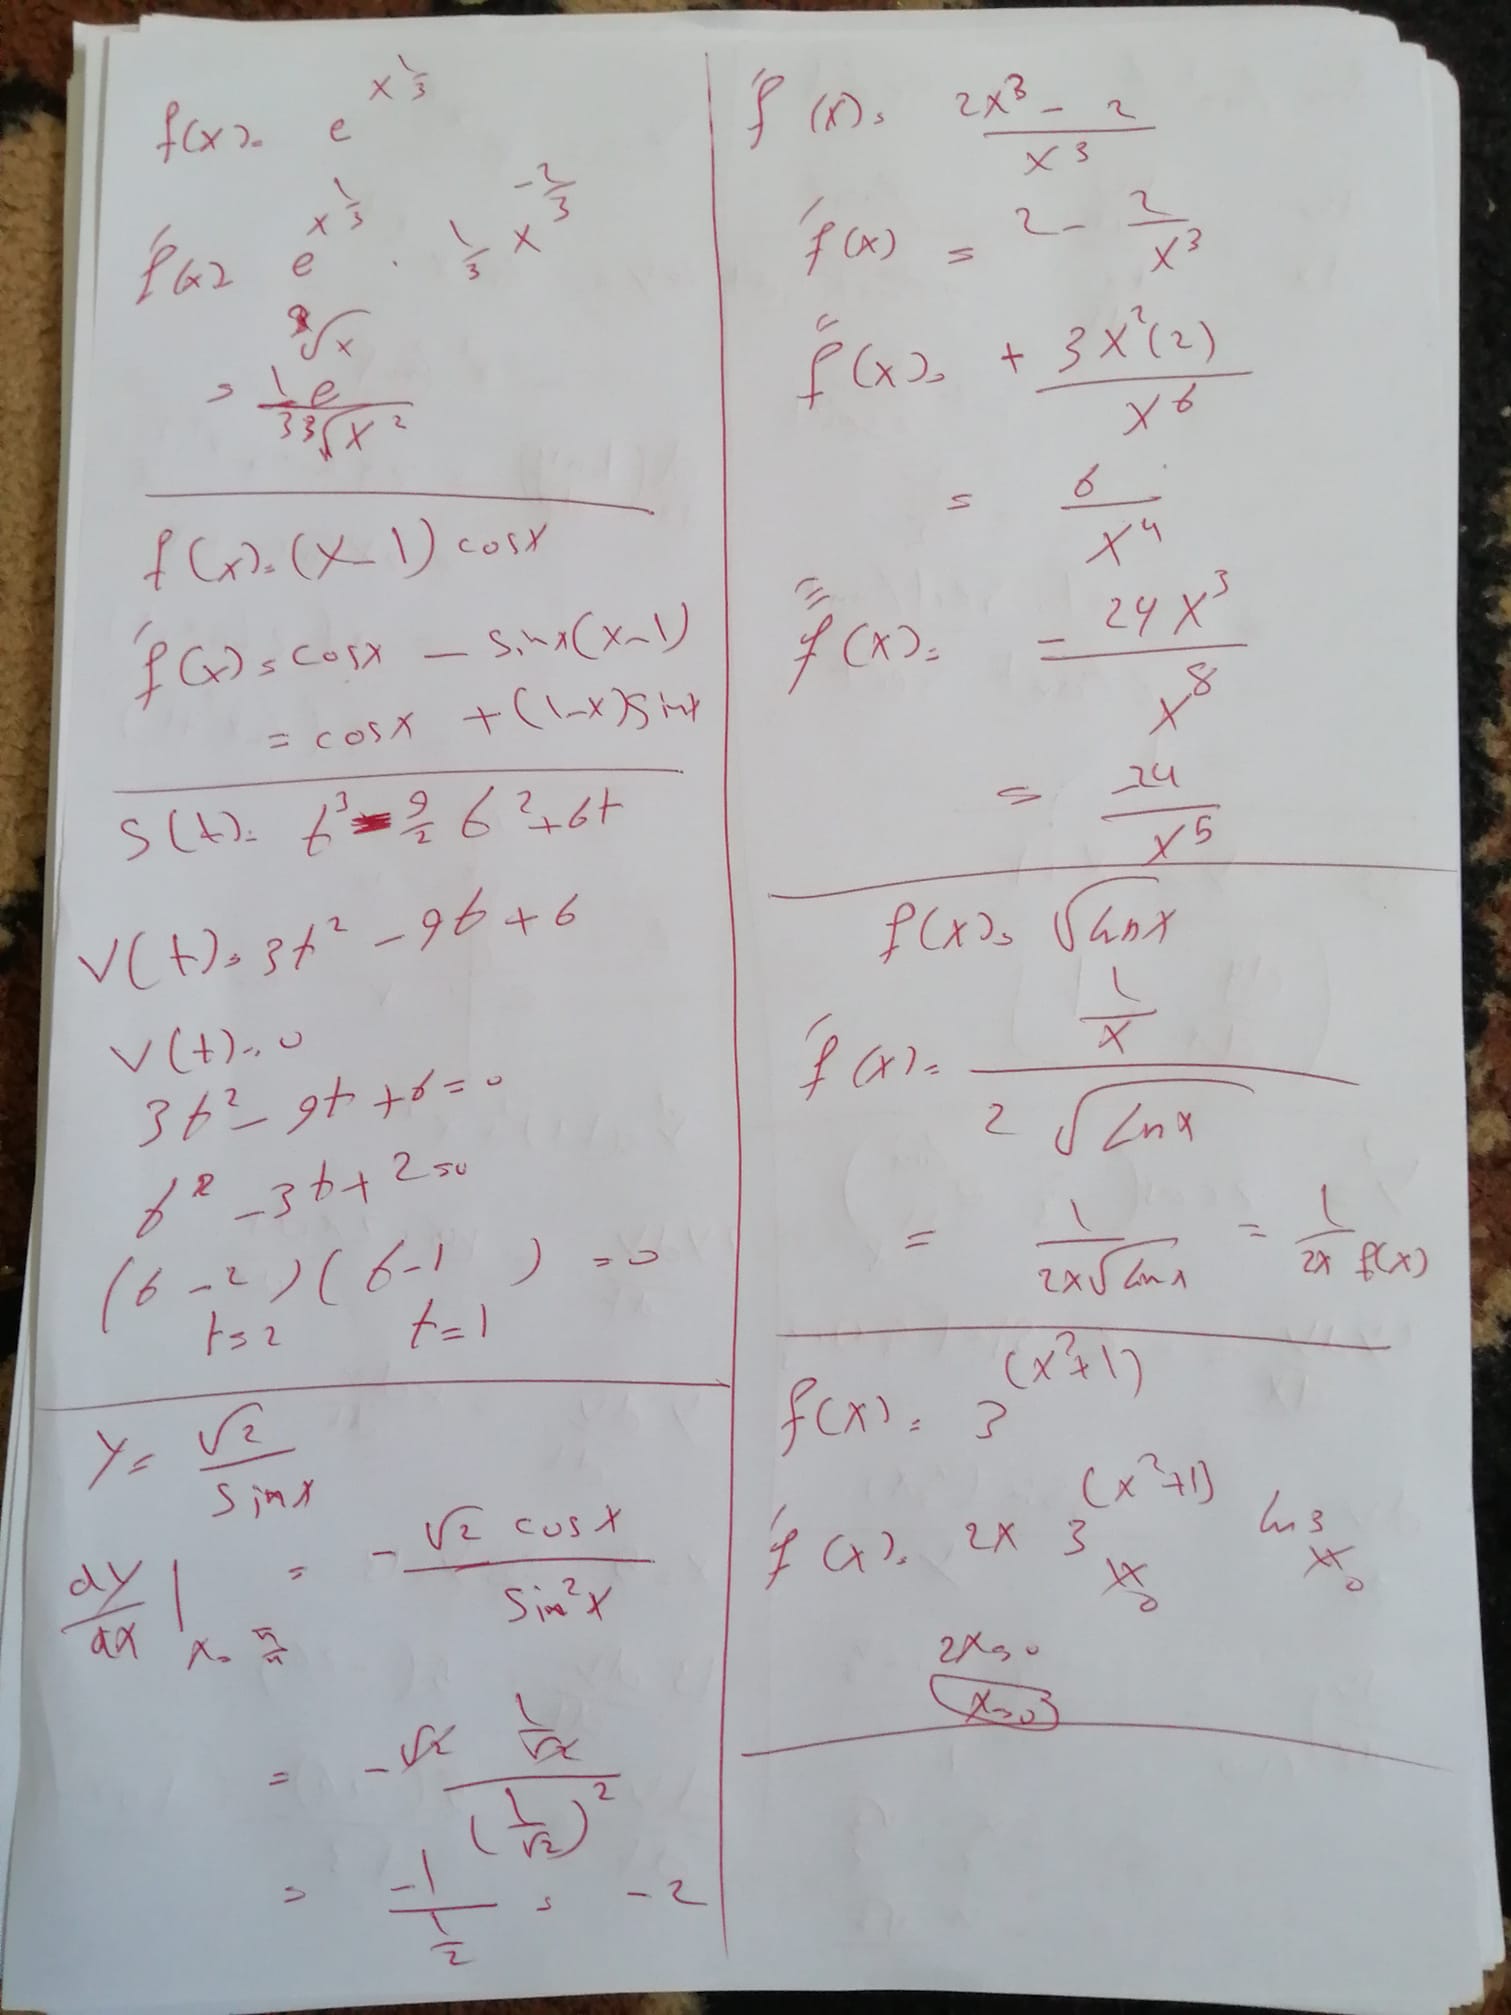 f(x) = e^{x^{1/3}}
f'(x) = e^{x^{1/3}} . 1/3 x^{-2/3}
= 1 e^{∛x} / 3 ∛x²
f(x) = (x-1) cosx
f'(x) = cosx - sinx(x-1)
= cosx + (1-x)sinx
S(t) = t³ - 9/2 t² + 6t
V(t) = 3t² - 9t + 6
V(t) = 0
3t² - 9t + 6 = 0
t² - 3t + 2 = 0
(t - 2)(t - 1) = 0
t = 2 t = 1
y = √2 / sinx
dy/dx | x = π/4 = - √2 cosx / sin²x
= - √2 (1/√2) / (1/√2)²
= -1 / (1/2) = -2
f'(x) = 2x³ - 2 / x³
f'(x) = 2 - 2/x³
f''(x) = + 3x²(2) / x⁶
= 6 / x⁴
f'''(x) = = 24x³ / x⁸
= -24 / x⁵
f(x) = √lnx
f'(x) = (1/x) / 2√lnx
= 1 / 2x√lnx = 1 / 2x f(x)
f(x) = 3^{(x²+1)}
f'(x) = 2x 3^{(x²+1)} ln3
≠0 ≠0
2x = 0
x = 0